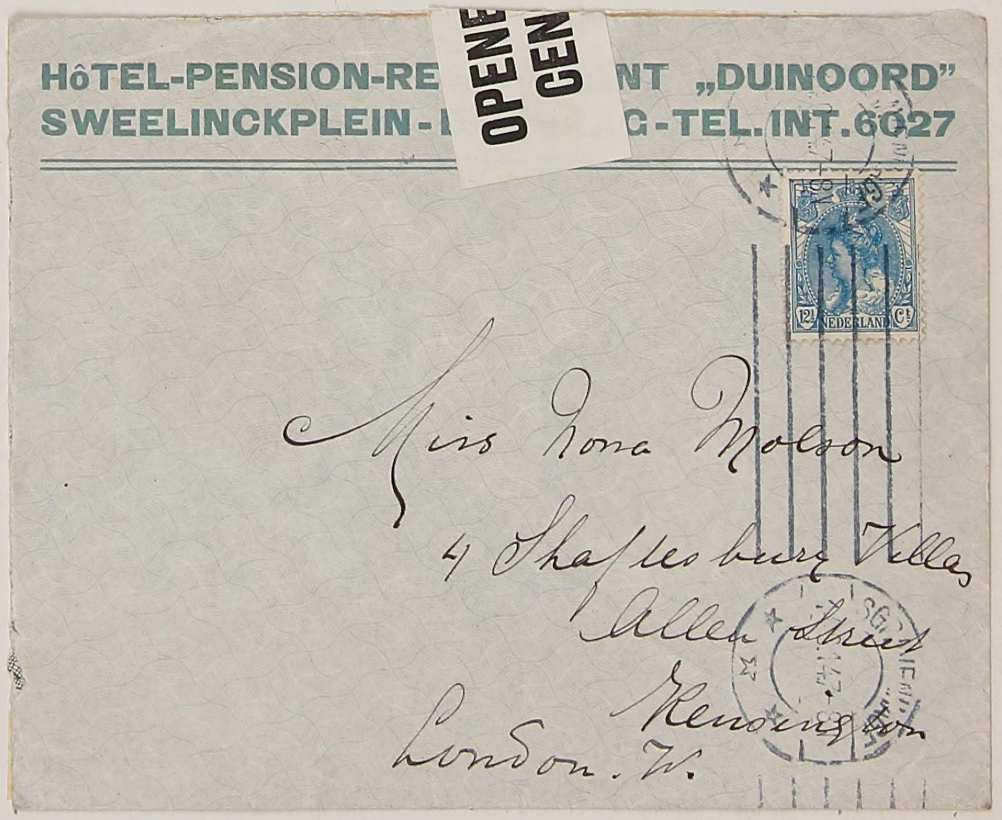 HôTEL-PENSION-RE NT „DUINOORD”
SWEELINCKPLEIN- G-TEL. INT. 6027
OPENE
CEN
12½ NEDERLAND Ct
Miss Nona Molson
4 Shaftesbury Villas
Allen Street
Kensington
London. W.